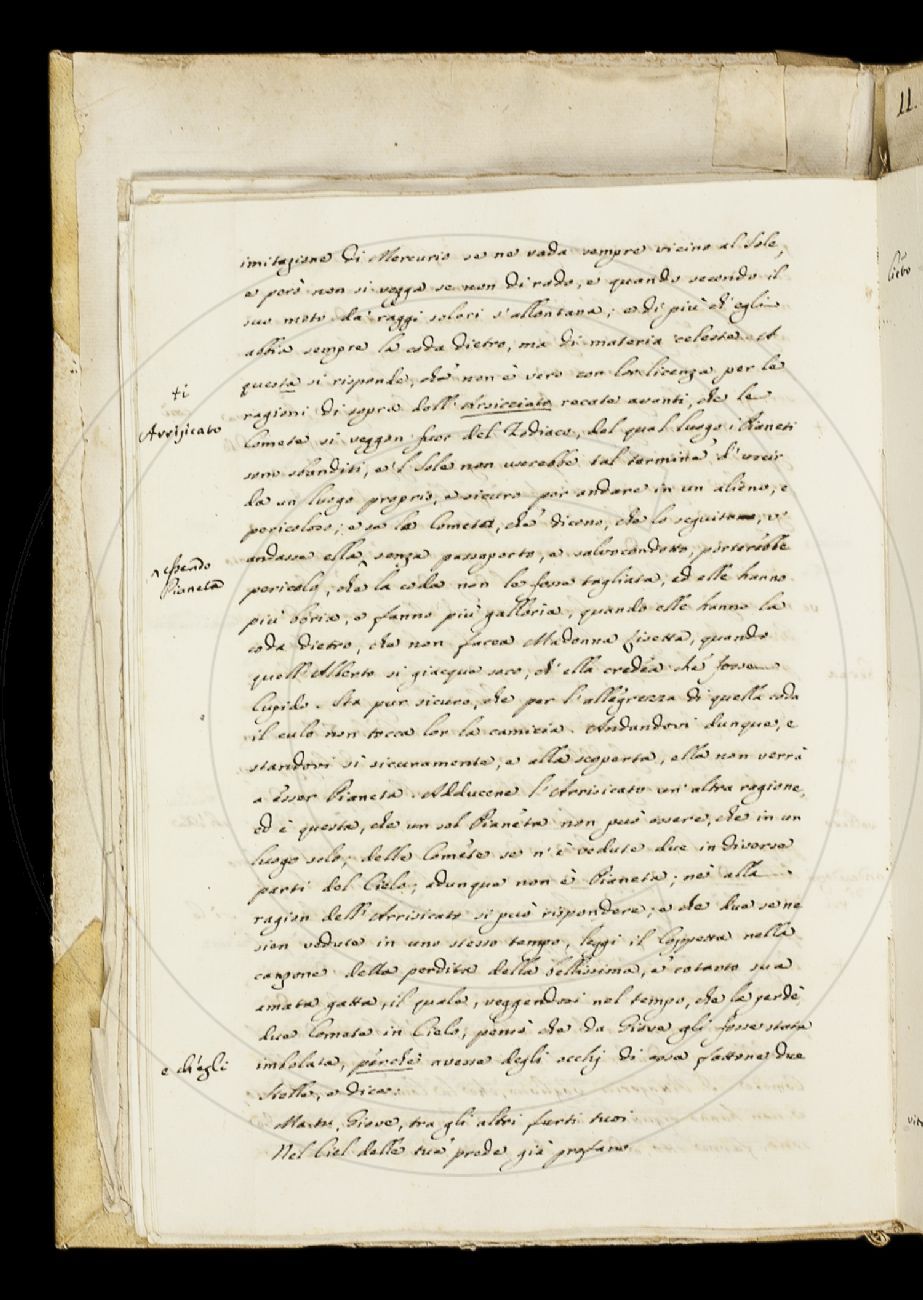 11.
imitazione di Mercurio se ne vada sempre vicino al Sole,
e però non si vegga se non di rado, e quando secondo il
suo moto da' raggi solari s'allontana; e di più ch'egli
abbia sempre la coda dietro, ma di materia celeste. A
questa si risponde, che non è vero con lor licenza per le
ti
ragioni di sopra dall'Arsicciato recate avanti, che le
Avvisicato
Comete si veggon fuor del Zodiaco, dal qual luogo i Pianeti
sono sbanditi, e 'l Sole non userebbe tal termine d'uscir
da un luogo proprio, e sicuro per andare in un alieno, e
pericoloso; e se la Cometa, che dicono, che lo seguita, v'
andasse ella senza passaporto, e salvocondotto, porterebbe
essendo
Pianeta
pericolo, che la coda non le fosse tagliata, ed elle hanno
più boria, e fanno più galloria, quando elle hanno la
coda dietro, che non facea Madonna Lisetta, quando
quell'Alberto si giacque seco, ch'ella credea che fosse
Cupido. Sta pur sicuro, che per l'allegrezza di quella coda
il culo non tocca lor la camicia. Andandovi dunque, e
standovi sì sicuramente, e alla scoperta, ella non verrà
a esser Pianeta. Adducene l'Arrisicato un'altra ragione,
ed è questa, che un sol Pianeta non può essere, che in un
luogo solo; delle Comete se n'è vedute due in diverse
parti del Cielo; adunque non è Pianeta; nè alla
ragion dell'Arrisicato si può rispondere; e che due se ne
sien vedute in uno stesso tempo, leggi il Coppetta nella
canzone della perdita della bellissima, e cotanto sua
amata gatta, il quale, veggendosi nel tempo, che la perdè,
due Comete in Cielo, pensò che da Giove gli fosse stata
e ch'egli
imbolata, perchè avesse degli occhj di essa fattone due
Stelle, e dice:
Ma tu, Giove, tra gli altri furti tuoi
Nel Ciel delle tue prede già profano